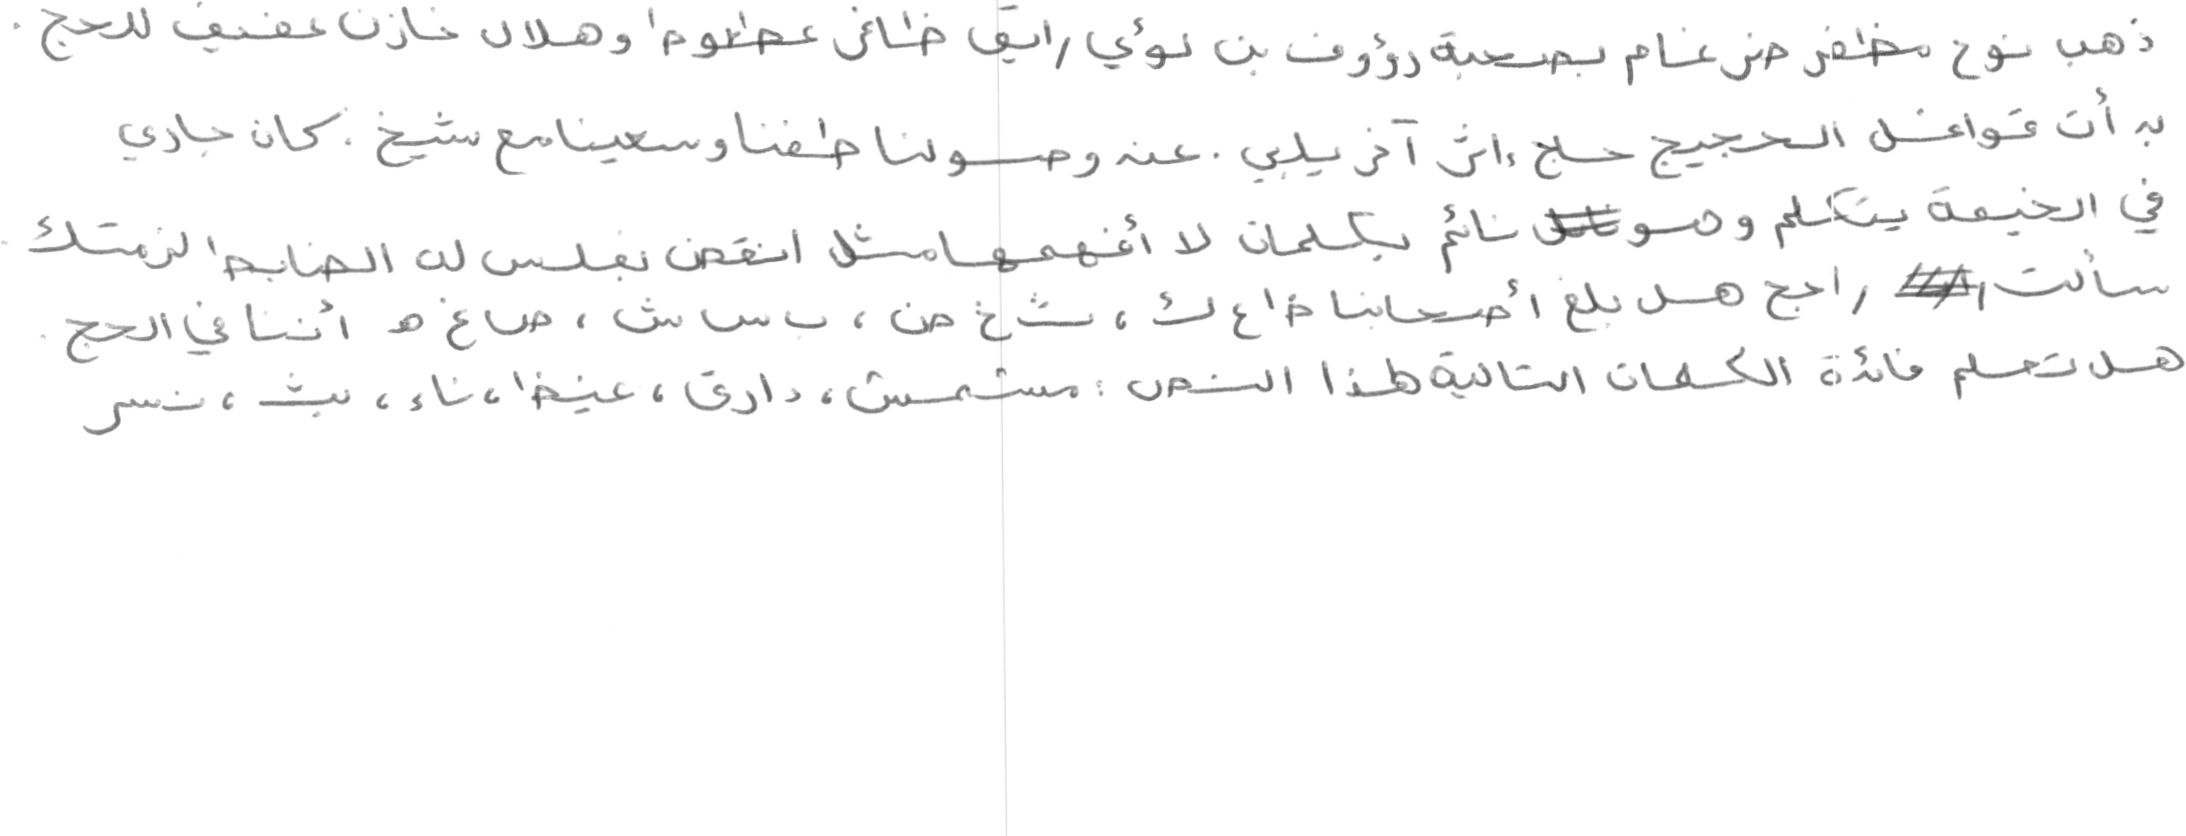 ذهب نوح مظفر ضرغام بصحبة رؤوف بن لؤي رايق ظافر عطعوط وهلال خازن عفيف للحج .
بدأت قوافل الحجيج حاج إثر آخر يلبي . عند وصولنا طفنا وسعينا مع شيخ . كان جاري
في الخيمة يتكلم وهو نائم بكلمات لا أفهمها مثل انقض بغلس لد الضابط لزمتك .
سألت راجح هل بلغ أصحابنا ظ ع ك ، ث خ ض ، ب س ش ، ص غ ه أننا في الحج .
هل تعلم فائدة الكلمات التالية لهذا النص : مستمش ، دارق ، غيظ ، ناء ، بث ، نسر